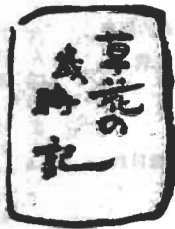 草花の
歳時記